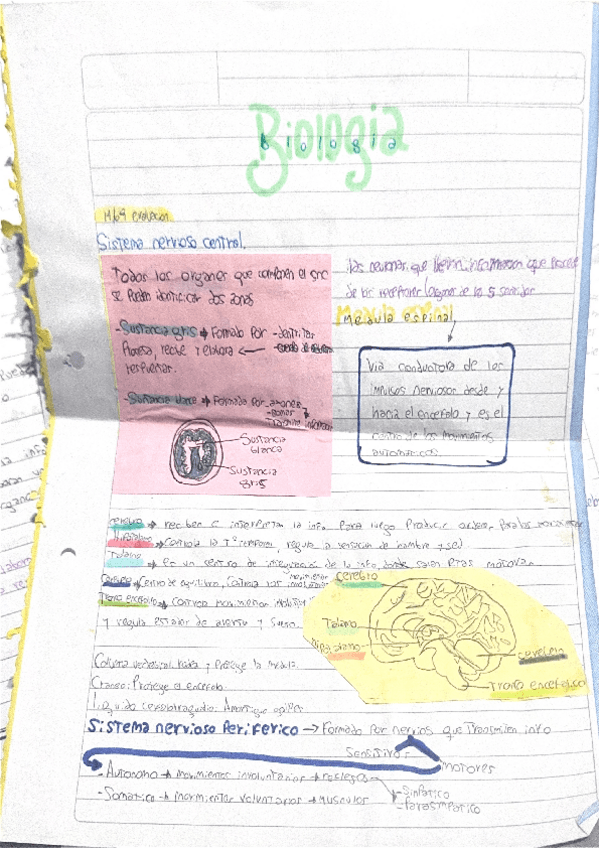 Biología
Biologia
14/09 evaluacion
Sistema nervioso central.
Todos los organos que componen el snc
se pueden identificar dos zonas
-Sustancia gris → Formado Por -dentritas
Procesa, recibe y elabora ←
respuestas.
-Sustancia blanca → Formada Por axones
Transmite informacion
Sustancia
blanca
Sustancia
gris
las neuronas que llevan informacion que
de los receptores (organos de los 5 sentidos
Medula espinal
Medula espinal
Via conductora de los
impulsos nerviosos desde y
hacia el encefalo y es el
centro de los movimientos
automaticos.
cerebro → recibe e interpretan la info Para luego Producir ordenes Para los
Hipotalamo → Controla la T° corporal, regula la sensacion de hambre y sed
Talamo → Es un centro de integracion de la info, donde salen rtas motoras.
Cerebelo → Centro de equilibrio, Controla los movimientos
Tronco encefalico → Controla movimientos involuntarios
y regula estados de alerta y sueño.
cerebro
Talamo
Hipotalamo
cerebelo
Tronco encefalico
Columna vertebral: Rodea y Protege la medula.
Craneo: Protege el encefalo.
Liquido cefalorraquideo: Amortigua golpes
Sistema nervioso Periferico → Formado Por nervios que Transmiten info
Sensitivos
motores
- Autonomo → movimientos involuntarios → reflejos
- Simpatico
- Parasimpatico
- Somatico → movimientos voluntarios → muscular